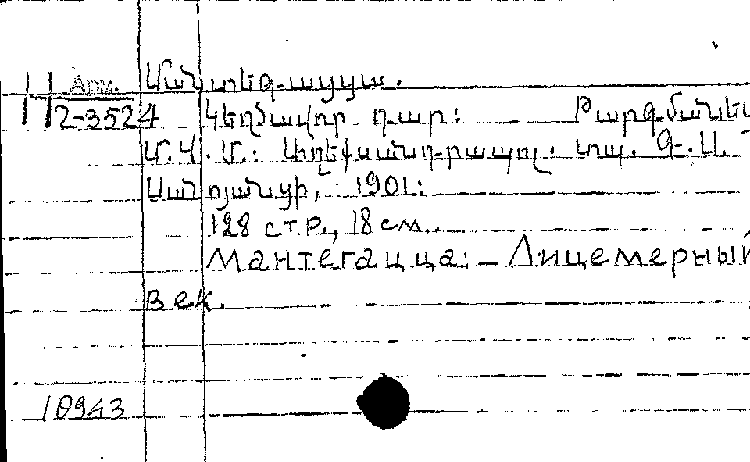 Արм. Մանտեգացցա.
II 2-3524 Կեղծավոր դար: Թարգմանեց
Մ. Կ. Մ.: Ալեքսանդրապոլ. տպ. Գ. Ս.
Սանոյանցի, 1901:
128 стр., 18 см.
Мантегацца: – Лицемерный
век.
10943